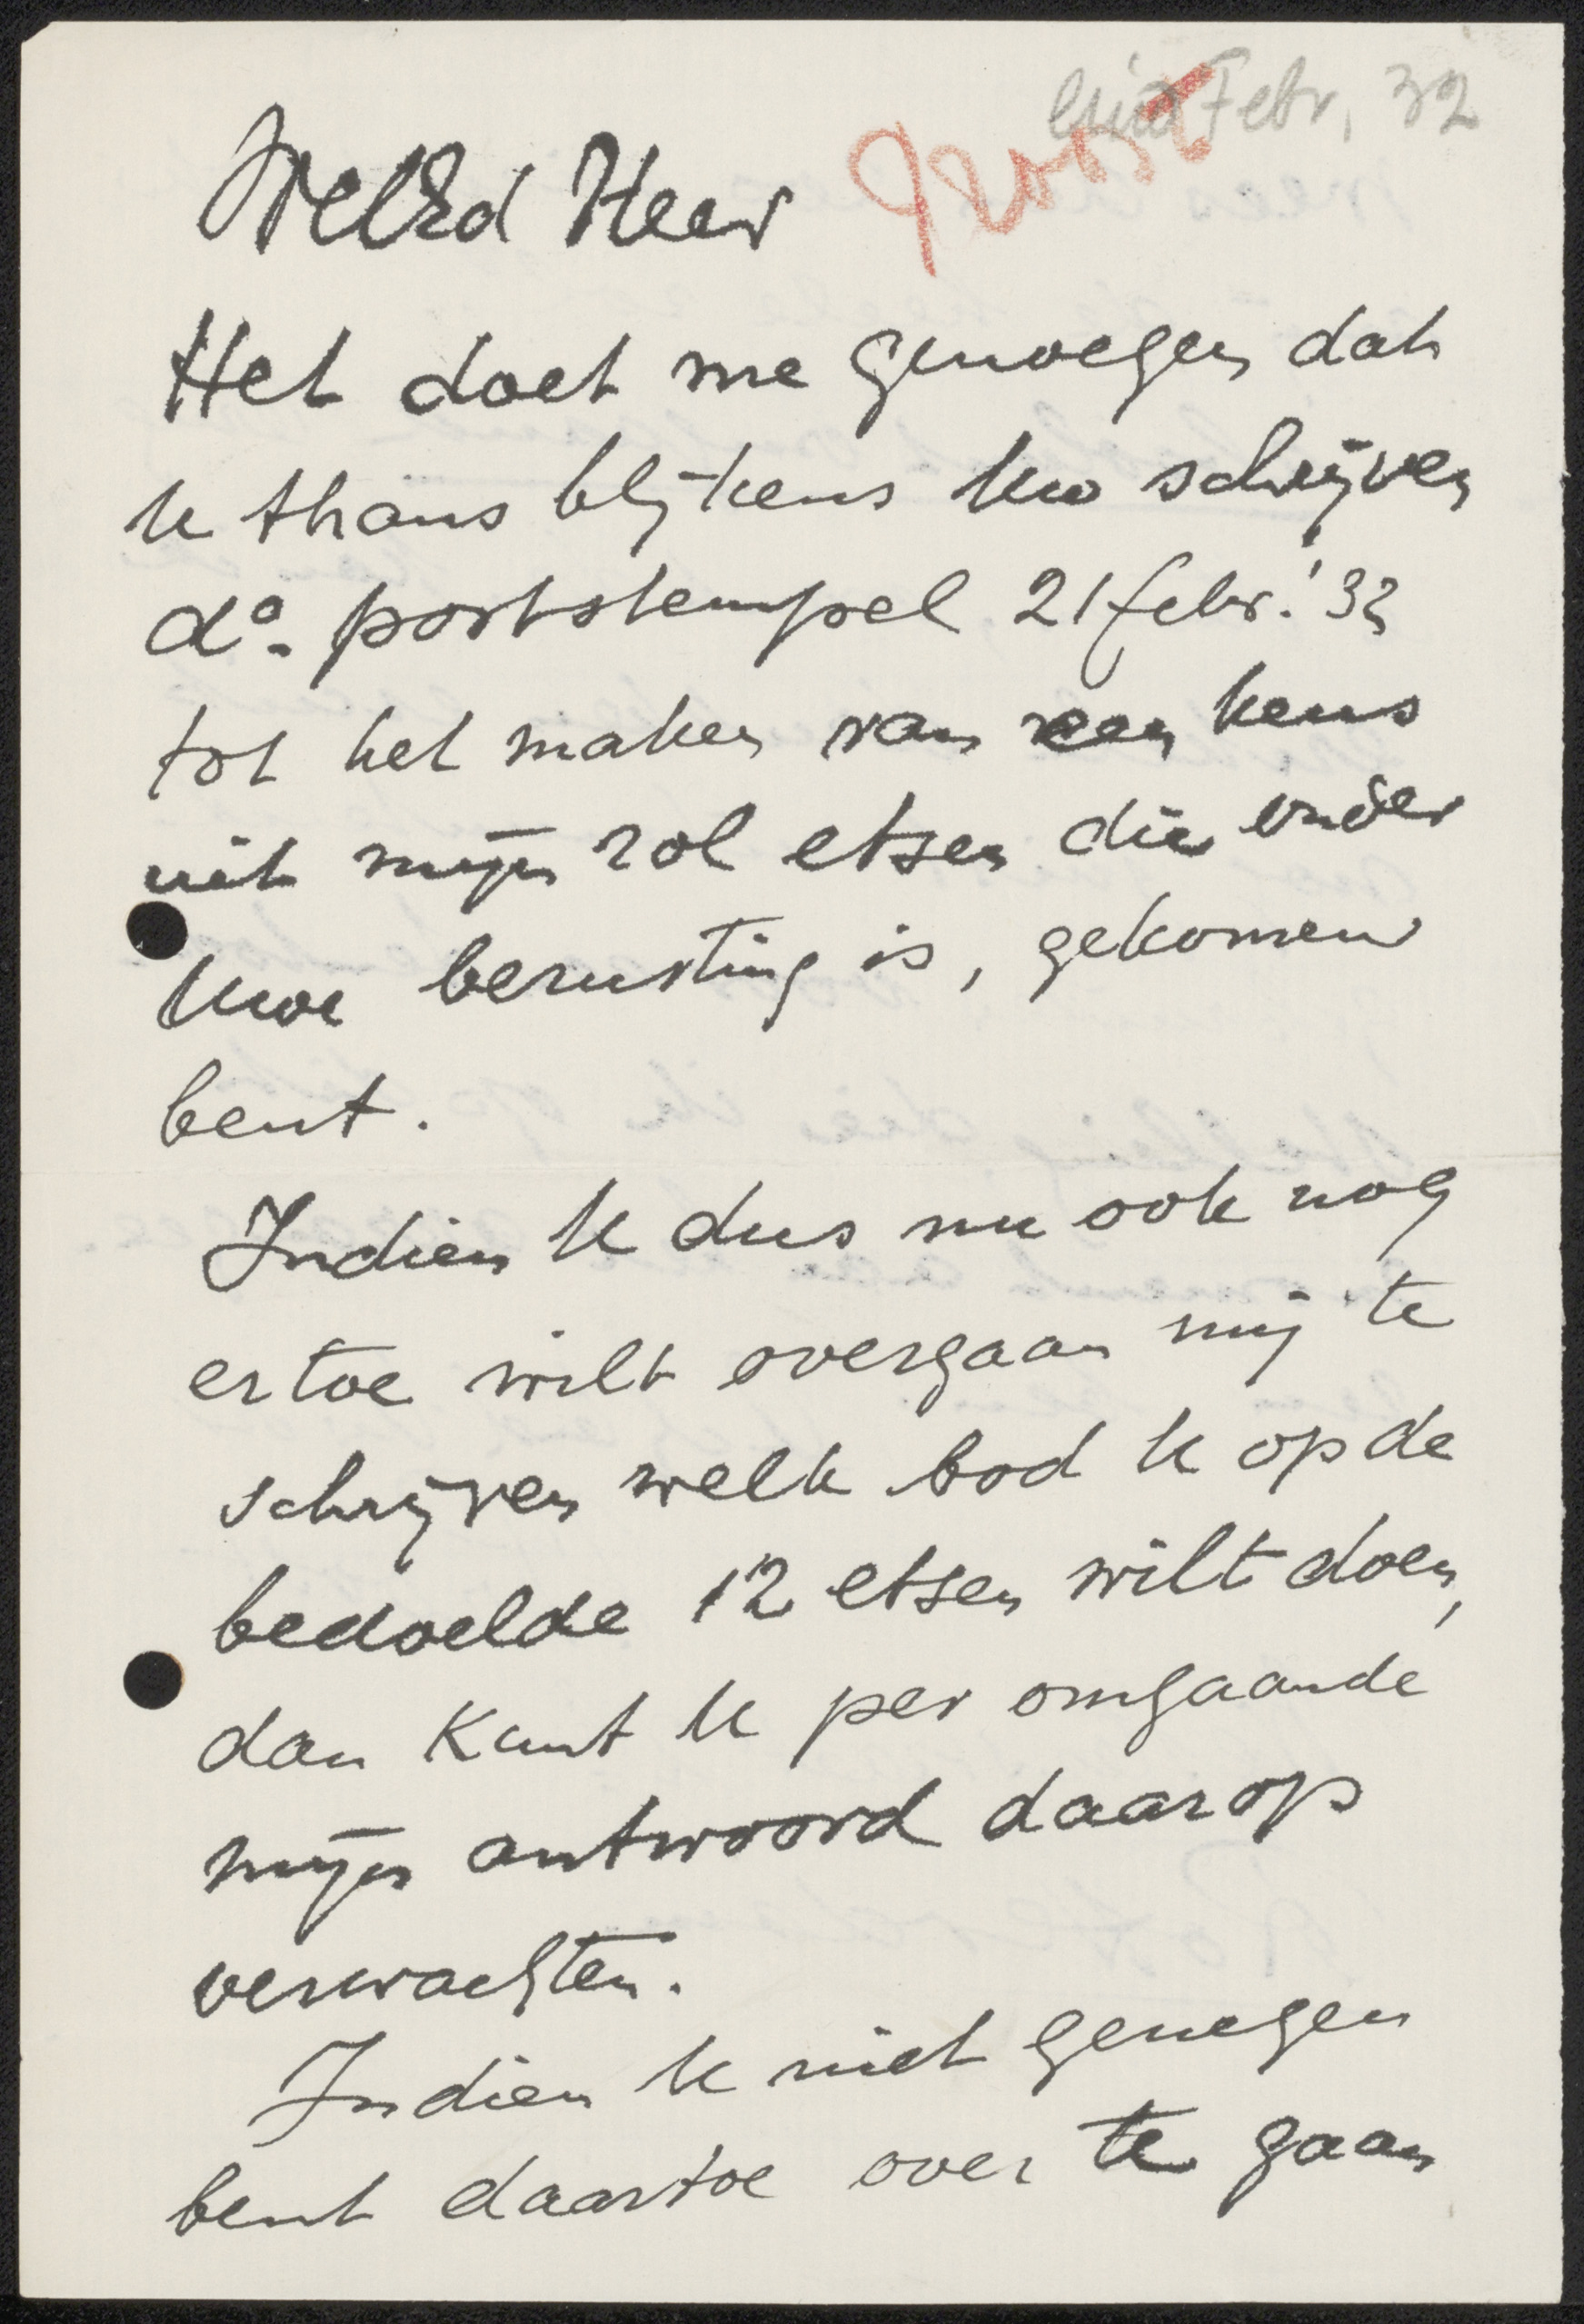 eind Febr, 32
WelEd Heer
Het doet me genoegen dat
U thans blijkens Uw schrijven
d° poststempel 21 febr. '32
tot het maken van een keus
uit mijn rol etsen die onder
Uwe berusting is, gekomen
bent.
Indien U dus nu ook nog
ertoe wilt overgaan mij te
schrijven welk bod U op de
bedoelde 12 etsen wilt doen,
dan kunt U per omgaande
mijn antwoord daarop
verwachten.
Indien U niet genegen
bent daartoe over te gaan